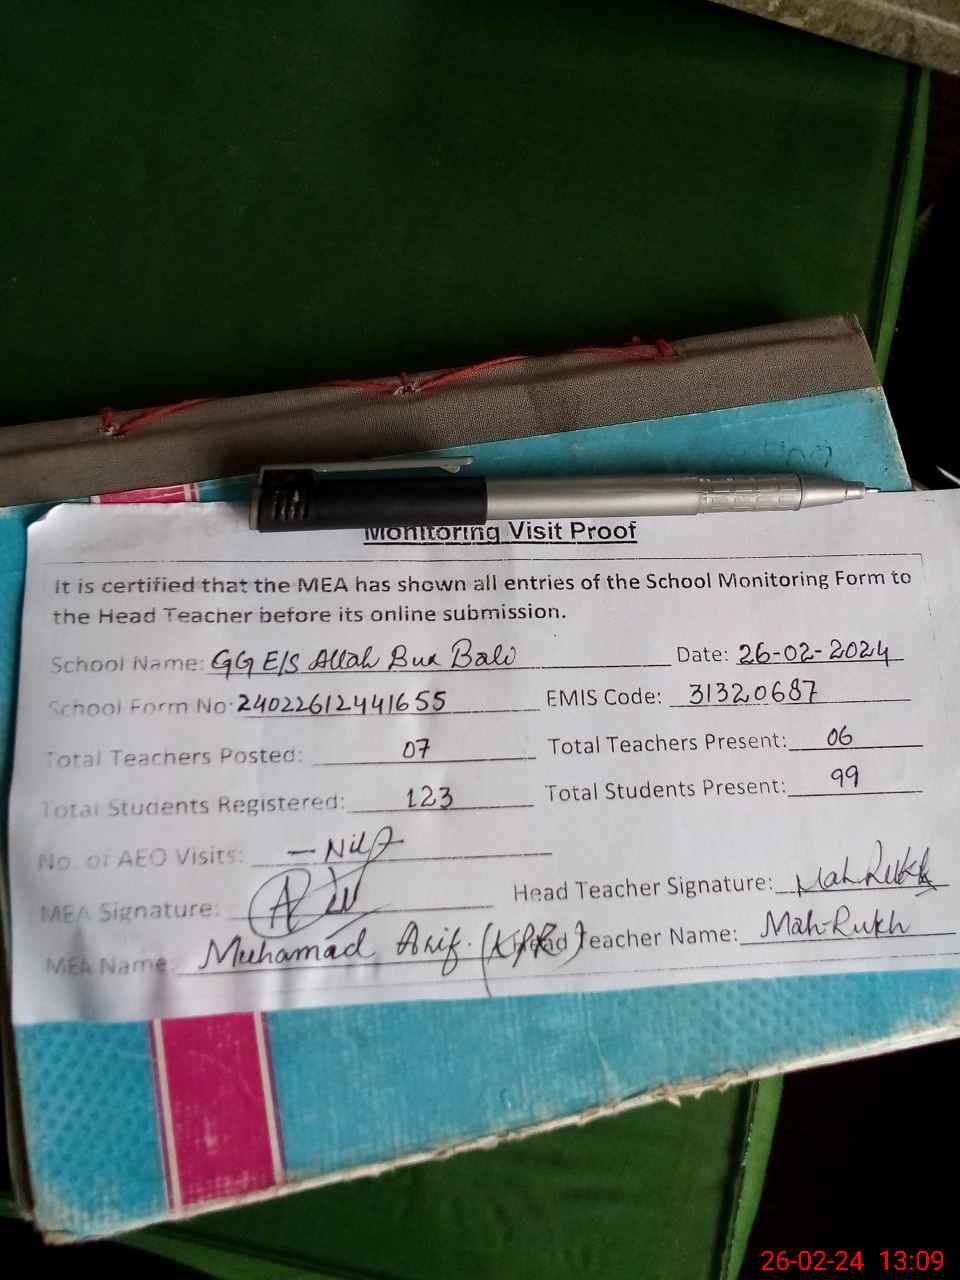 Monitoring Visit Proof
It is certified that the MEA has shown all entries of the School Monitoring Form to
the Head Teacher before its online submission.
School Name: GGE/S Allah Bux Bali Date: 26-02-2024
School Form No: 24022612441655 EMIS Code: 31320687
Total Teachers Posted: 07 Total Teachers Present: 06
Total Students Registered: 123 Total Students Present: 99
No. of AEO Visits: - Nil
MEA Signature: Head Teacher Signature: Mah Rukh
MEA Name: Muhamad Arif. Head Teacher Name: Mah-Rukh
26-02-24 13:09